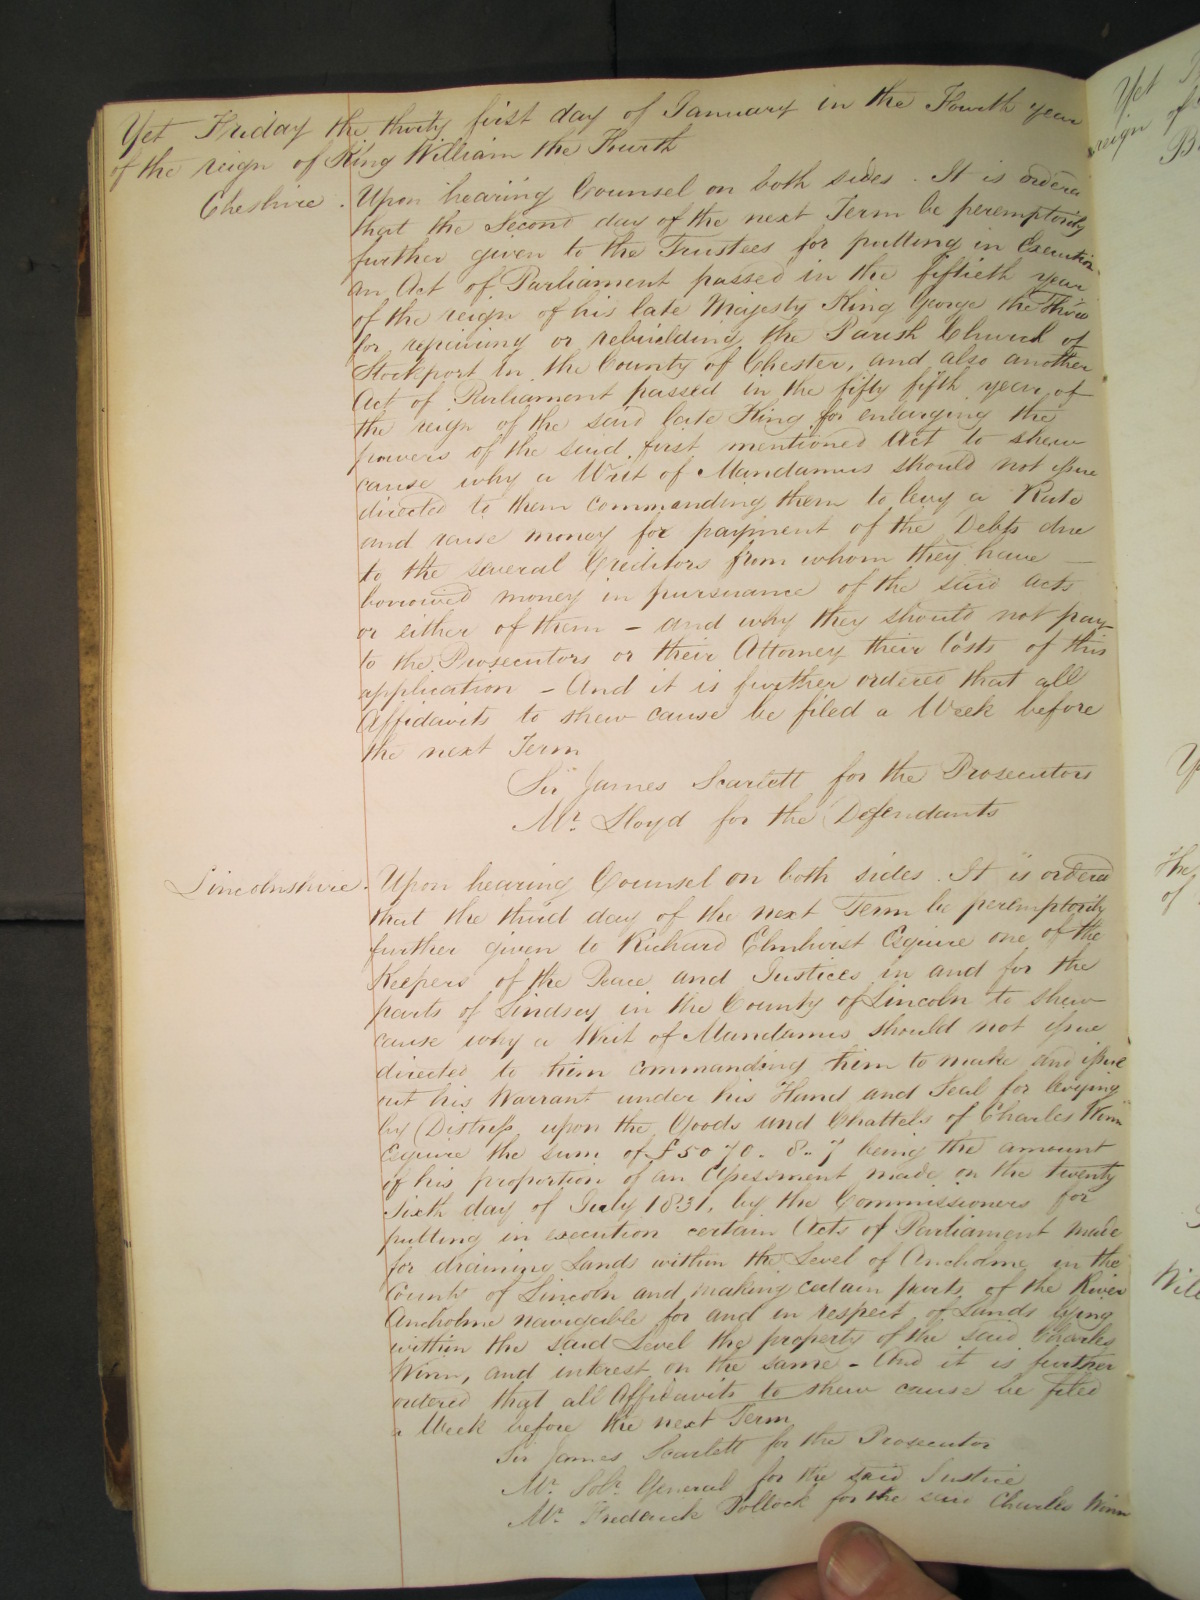 Yet Friday the thirty first day of January in the Fourth year
of the reign of King William the Fourth
Cheshire. Upon hearing Counsel on both sides. It is ordered
that the Second day of the next Term be peremptorily
further given to the Trustees for putting in Execution
an Act of Parliament passed in the fiftieth year
of the reign of his late Majesty King George the Third
for repairing or rebuilding the Parish Church of
Stockport in the County of Chester, and also another
Act of Parliament passed in the fifty fifth year of
the reign of the said late King for enlarging the
powers of the said first mentioned Act to shew
cause why a Writ of Mandamus should not issue
directed to them commanding them to levy a Rate
and raise money for payment of the Debts due
to the several Creditors from whom they have
borrowed money in pursuance of the said acts
or either of them – and why they should not pay
to the Prosecutors or their Attorney their Costs of this
application – And it is further ordered that all
Affidavits to shew cause be filed a Week before
the next Term
Sir James Scarlett for the Prosecutors
Mr. Lloyd for the Defendants
Lincolnshire. Upon hearing Counsel on both sides. It is ordered
that the third day of the next Term be peremptorily
further given to Richard Elmhirst Esquire one of the
Keepers of the Peace and Justices in and for the
parts of Lindsey in the County of Lincoln to shew
cause why a Writ of Mandamus should not issue
directed to him commanding him to make and issue
out his Warrant under his Hand and Seal for levying
by Distress upon the Goods and Chattels of Charles Winn
Esquire the sum of being the amount
of his proportion of an Assessment made on the twenty
sixth day of July 1831, by the Commissioners for
putting in execution certain Acts of Parliament made
for draining Lands within the Level of Ancholme in the
County of Lincoln and making certain parts of the River
Ancholme navigable for and in respect of Lands lying
within the said Level the property of the said Charles
Winn, and interest on the same – And it is further
ordered that all Affidavits to shew cause be filed
a Week before the next Term
Sir James Scarlett for the Prosecutor
Mr. Solr. General for the said Justice
Mr. Frederick Pollock for the said Charles Winn
Yet
reign
of